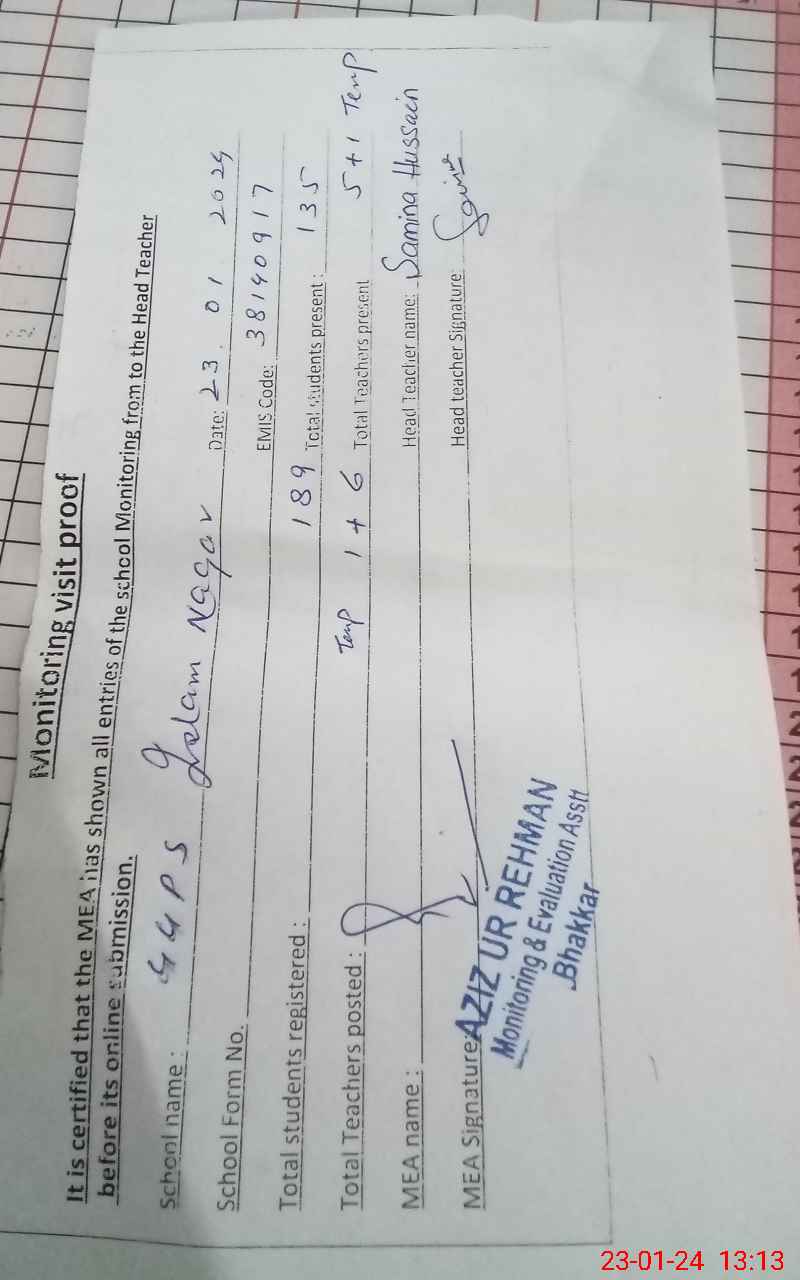 Monitoring visit proof
It is certified that the MEA has shown all entries of the school Monitoring from to the Head Teacher
before its online submission.
School name : GGPS Islam Nagar Date: 23. 01 2024
School Form No. EMIS Code: 38140917
Total students registered : 189 Total students present : 135
Total Teachers posted : Temp 1 + 6 Total Teachers present 5 + 1 Temp
MEA name : Head Teacher name: Samina Hussain
MEA Signature: Head teacher Signature:
AZIZ UR REHMAN
Monitoring & Evaluation Asstt
Bhakkar
23-01-24 13:13